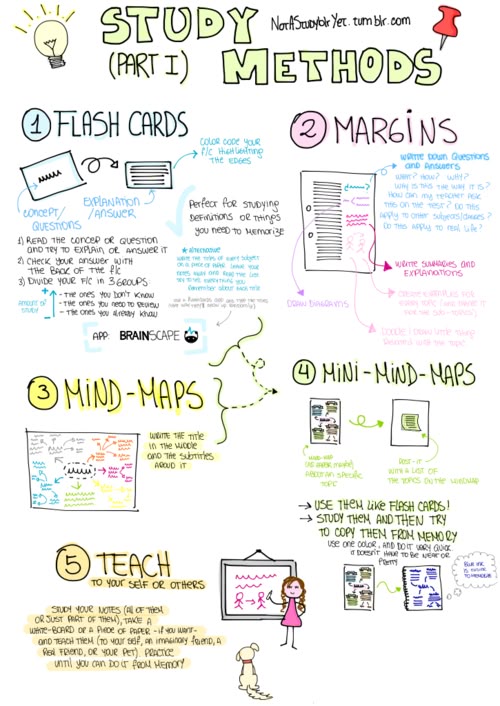 STUDY
(PART I) METHODS
NotAStudyblrYet.tumblr.com
1 FLASH CARDS
COLOR CODE YOUR
F/C HIGHLIGHTING
THE EDGES
CONCEPT/
QUESTIONS
EXPLANATION
/ANSWER
PERFECT FOR STUDYING
DEFINITIONS OR THINGS
YOU NEED TO MEMORIZE
1) READ THE CONCEPT OR QUESTION
AND TRY TO EXPLAIN OR ANSWER IT
2) CHECK YOUR ANSWER WITH
THE BACK OF THE F/C
3) DIVIDE YOUR F/C IN 3 GROUPS:
+
AMOUNT OF
STUDY
-
- THE ONES YOU DON'T KNOW
- THE ONES YOU NEED TO REVIEW
- THE ONES YOU ALREADY KNOW
* ALTERNATIVE
WRITE THE TITLES OF EVERY SUBJECT
ON A PIECE OF PAPER. LEAVE YOUR
NOTES AWAY AND READ THE LIST
TRY TO SAY EVERYTHING YOU
REMEMBER ABOUT EACH TITLE
APP: BRAINSCAPE
2 MARGINS
WRITE DOWN QUESTIONS
AND ANSWERS
WHAT? HOW? WHY?
WHY IS THIS THE WAY IT IS?
HOW CAN MY TEACHER ASK
THIS ON THE TEST? DO THIS
APPLY TO OTHER SUBJECTS/CLASSES?
DO THIS APPLY TO REAL LIFE?
WRITE SUMMARIES AND
EXPLANATIONS
CREATE EXAMPLES FOR
EVERY TOPIC (AND MAYBE IT
FOR THE SUB-TOPICS)
DRAW DIAGRAMS
DOODLE / DRAW LITTLE THINGS
RELATED WITH THE TOPIC
3 MIND-MAPS
WRITE THE TITLE
IN THE MIDDLE
AND THE SUBTITLES
AROUD IT
4 MINI-MIND-MAPS
MIND-MAP
ABOUT AN SPECIFIC
TOPIC
POST-IT
WITH A LIST OF
THE TOPICS ON THE MINDMAP
→ USE THEM LIKE FLASH CARDS!
→ STUDY THEM AND THEN TRY
TO COPY THEM FROM MEMORY
USE ONE COLOR, AND DO IT VERY QUICK
IT DOESN'T HAVE TO BE NEAT OR
PRETTY
BLUE INK
IS EASIER
TO MEMORIZE
5 TEACH
TO YOUR SELF OR OTHERS
STUDY YOUR NOTES (ALL OF THEM
OR JUST PART OF THEM), TAKE A
WHITE-BOARD OR A PIECE OF PAPER - IF YOU WANT-
AND TEACH THEM (TO YOUR SELF, AN IMAGINARY FRIEND, A
REAL FRIEND, OR YOUR PET). PRACTICE
UNTIL YOU CAN DO IT FROM MEMORY